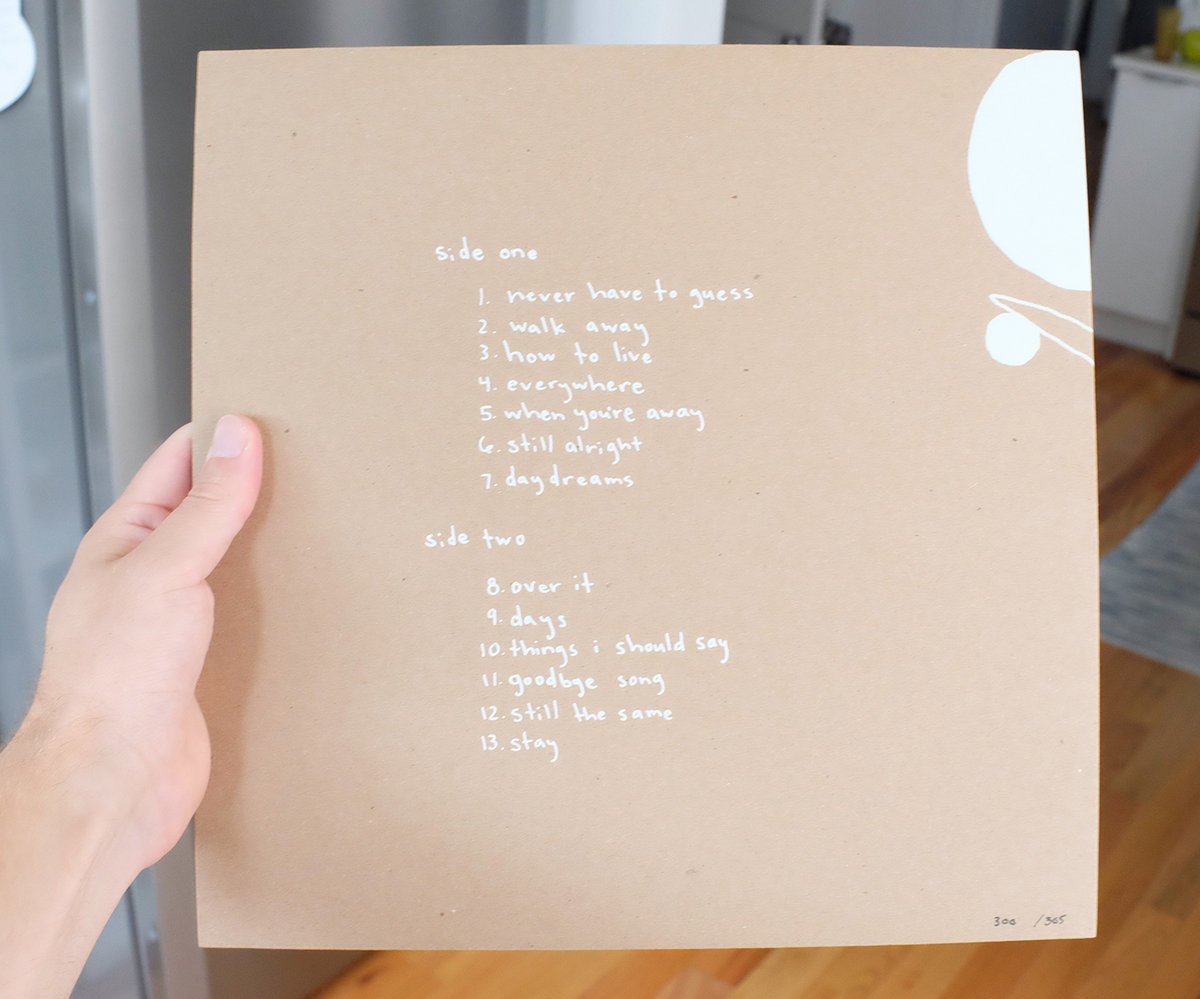 side one
1. never have to guess
2. walk away
3. how to live
4. everywhere
5. when you're away
6. still alright
7. daydreams
side two
8. over it
9. days
10. things i should say
11. goodbye song
12. still the same
13. stay
300 /365